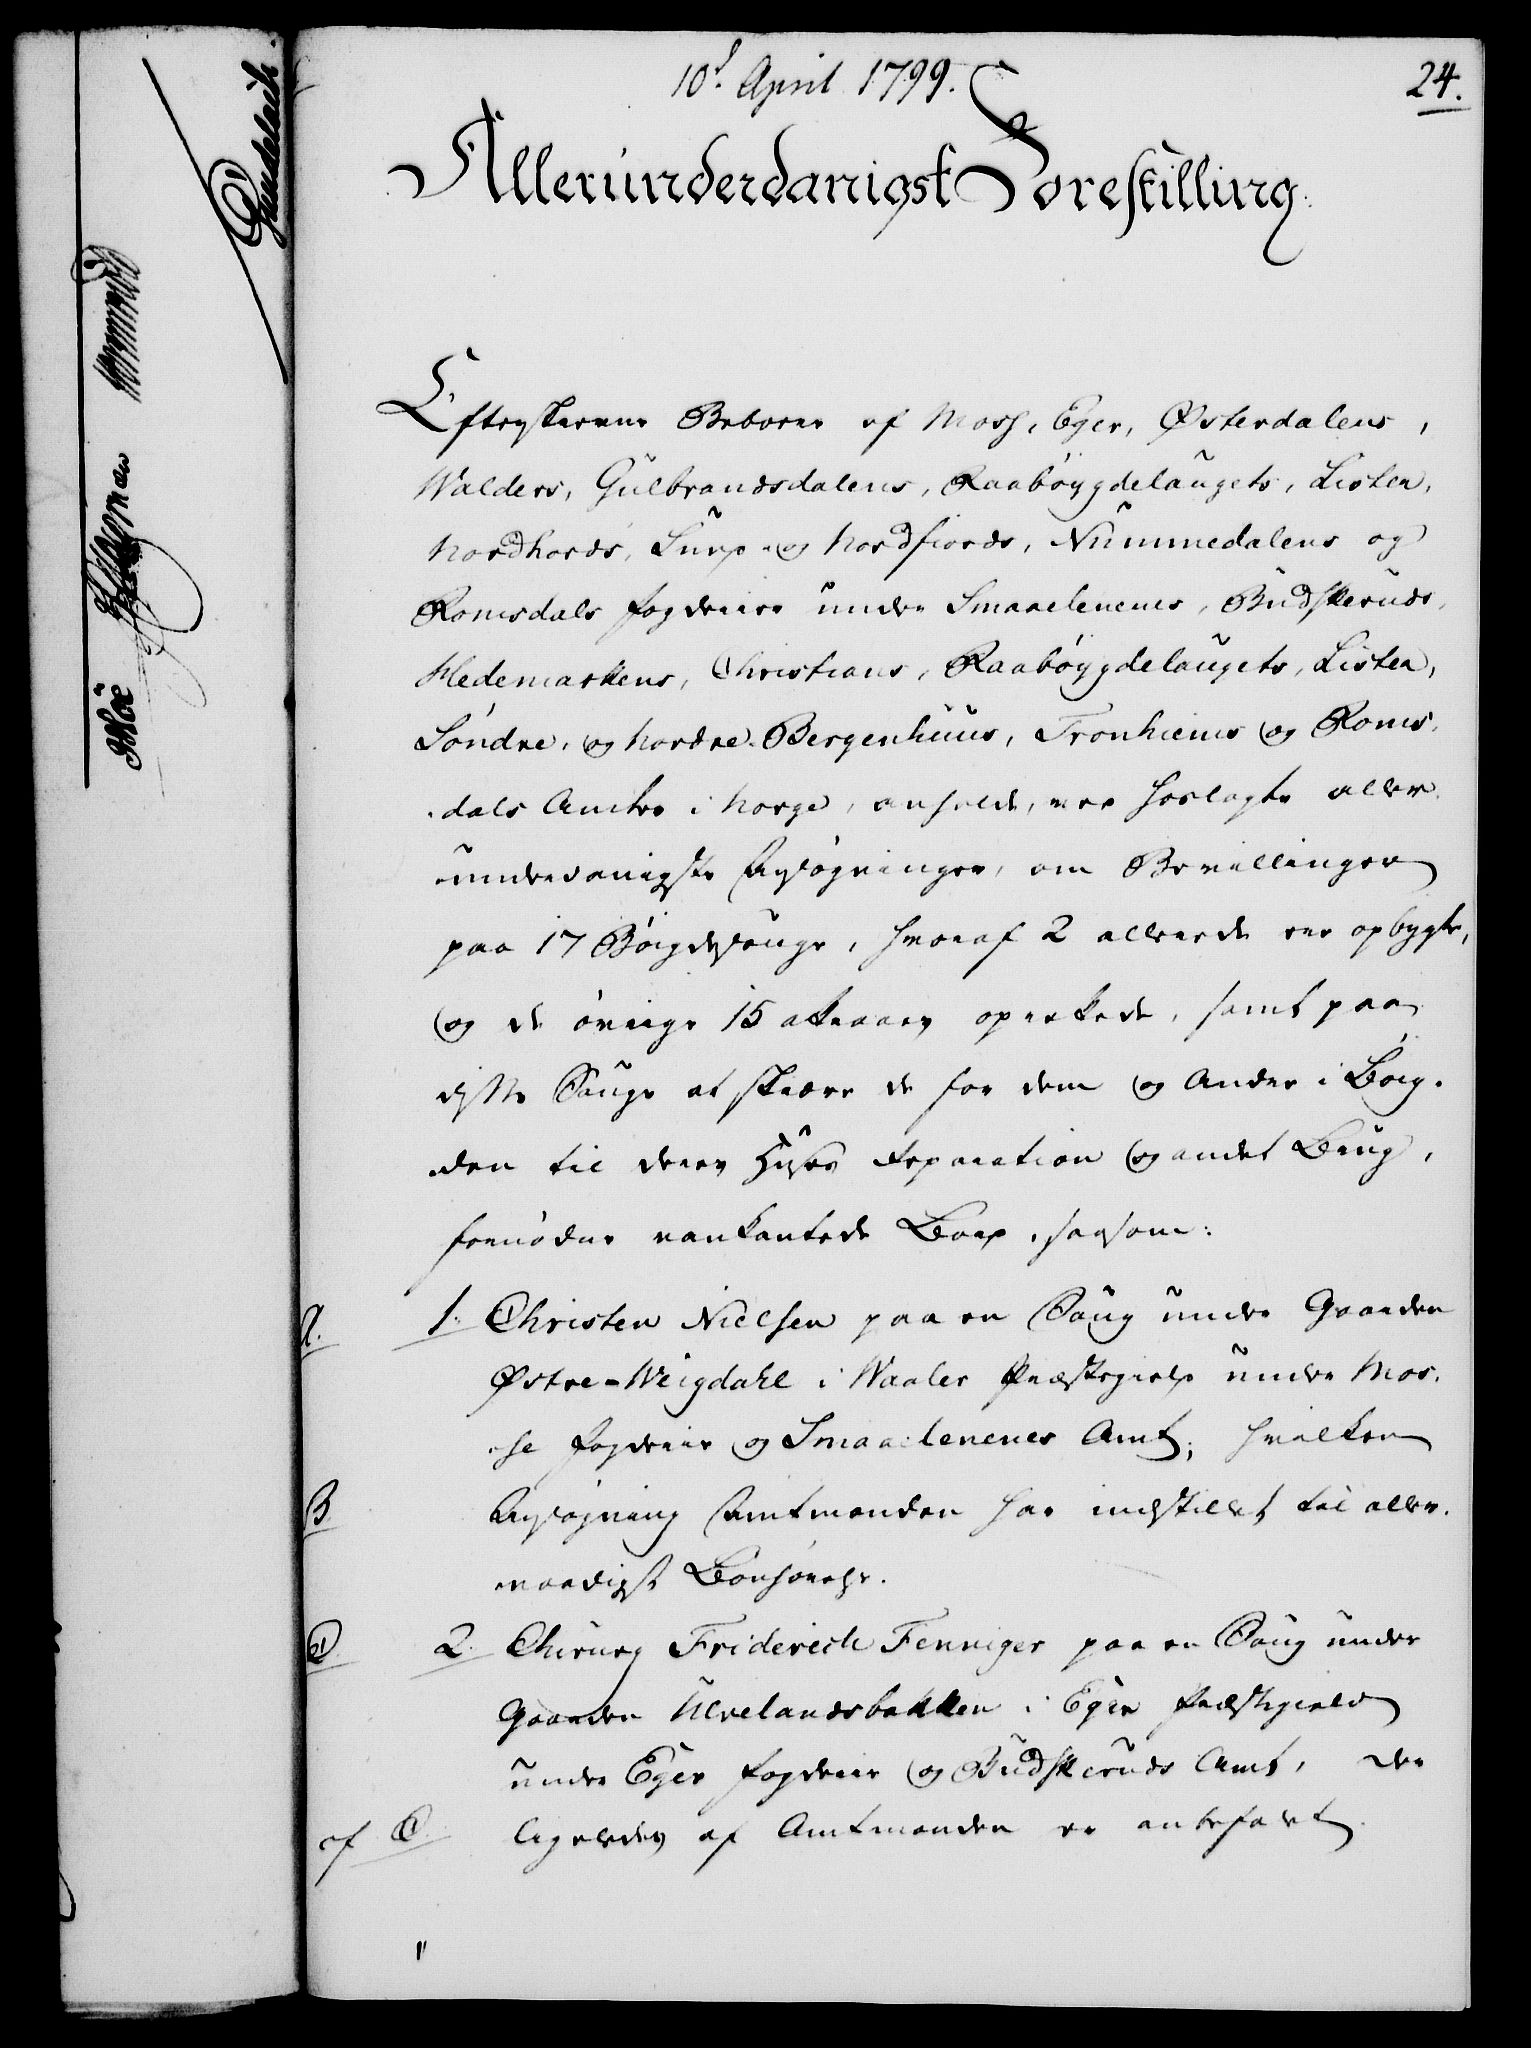 10d April 1799.
24.
Allerunderdanigst Forestilling.
Efterskrevne Beboere af Moss, Eger, Østerdalens,
Walders, Gulbrandsdalens, Raabøygdelaugets, Lister,
Nordhords, Sund- og Nordfiords, Nummedalens og
Romsdals Fogderier under Smaalenenes, Budskeruds,
Hedemarkens, Christians, Raabøygdelaugets, Lister,
Søndre- og Nordre-Bergenhuus, Tronhiems og Roms-
dals Amter i Norge, anholde, ved hoslagte aller-
underdanigste Ansøgninger, om Bevillinger
paa 17 Bøigdesauge, hvoraf 2 allerede ere opbygte,
og de øvrige 15 attraaes oprettede, samt paa
disse Sauge at skiære de for dem og Andre i Bøig-
den til deres Huses Reparation og andet Brug,
fornødne vankantede Bord, saasom:
A. 1. Christen Nielsen paa en Saug under Gaarden
Østre-Weigdahl i Waaler Præstegield under Mos-
se Fogderie og Smaalenenes Amt; hvilken
B Ansøgning Amtmanden har indstillet til aller-
naadigst Bønhørelse.
C. 2. Chirurg Friderich Fenniger paa en Saug under
Gaarden Ulvelandsbakken i Eger Præstegield
under Eger Fogderie og Budskeruds Amt, der
af C. ligeledes af Amtmanden er anbefalet.
Gundelach.